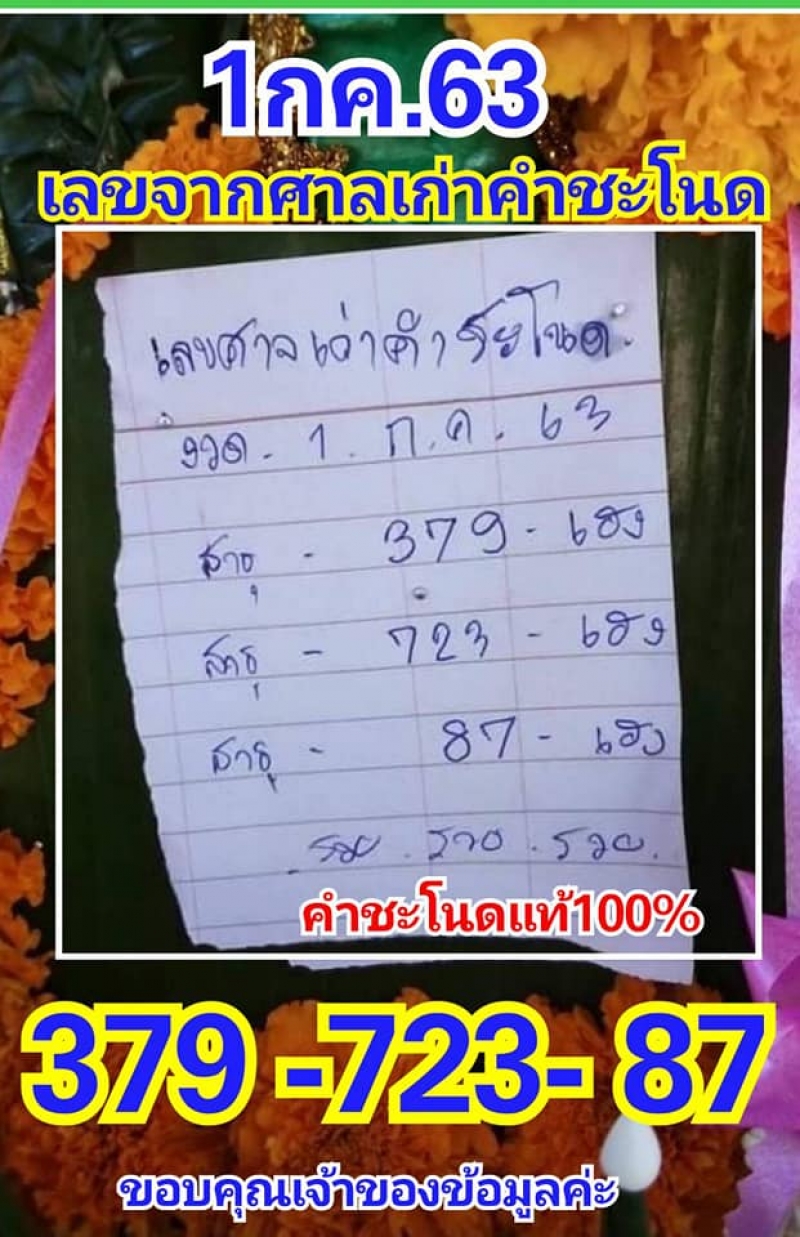 1กค.63
เลขจากศาลเก่าคำชะโนด
เลขศาลเก่าคำชะโนด
งวด. 1. ก.ค. 63
สาธุ - 379 - เฮง
สาธุ - 723 - เฮง
สาธุ - 87 - เฮง
รวย. รวย. รวย.
คำชะโนดแท้100%
379 -723- 87
ขอบคุณเจ้าของข้อมูลค่ะ